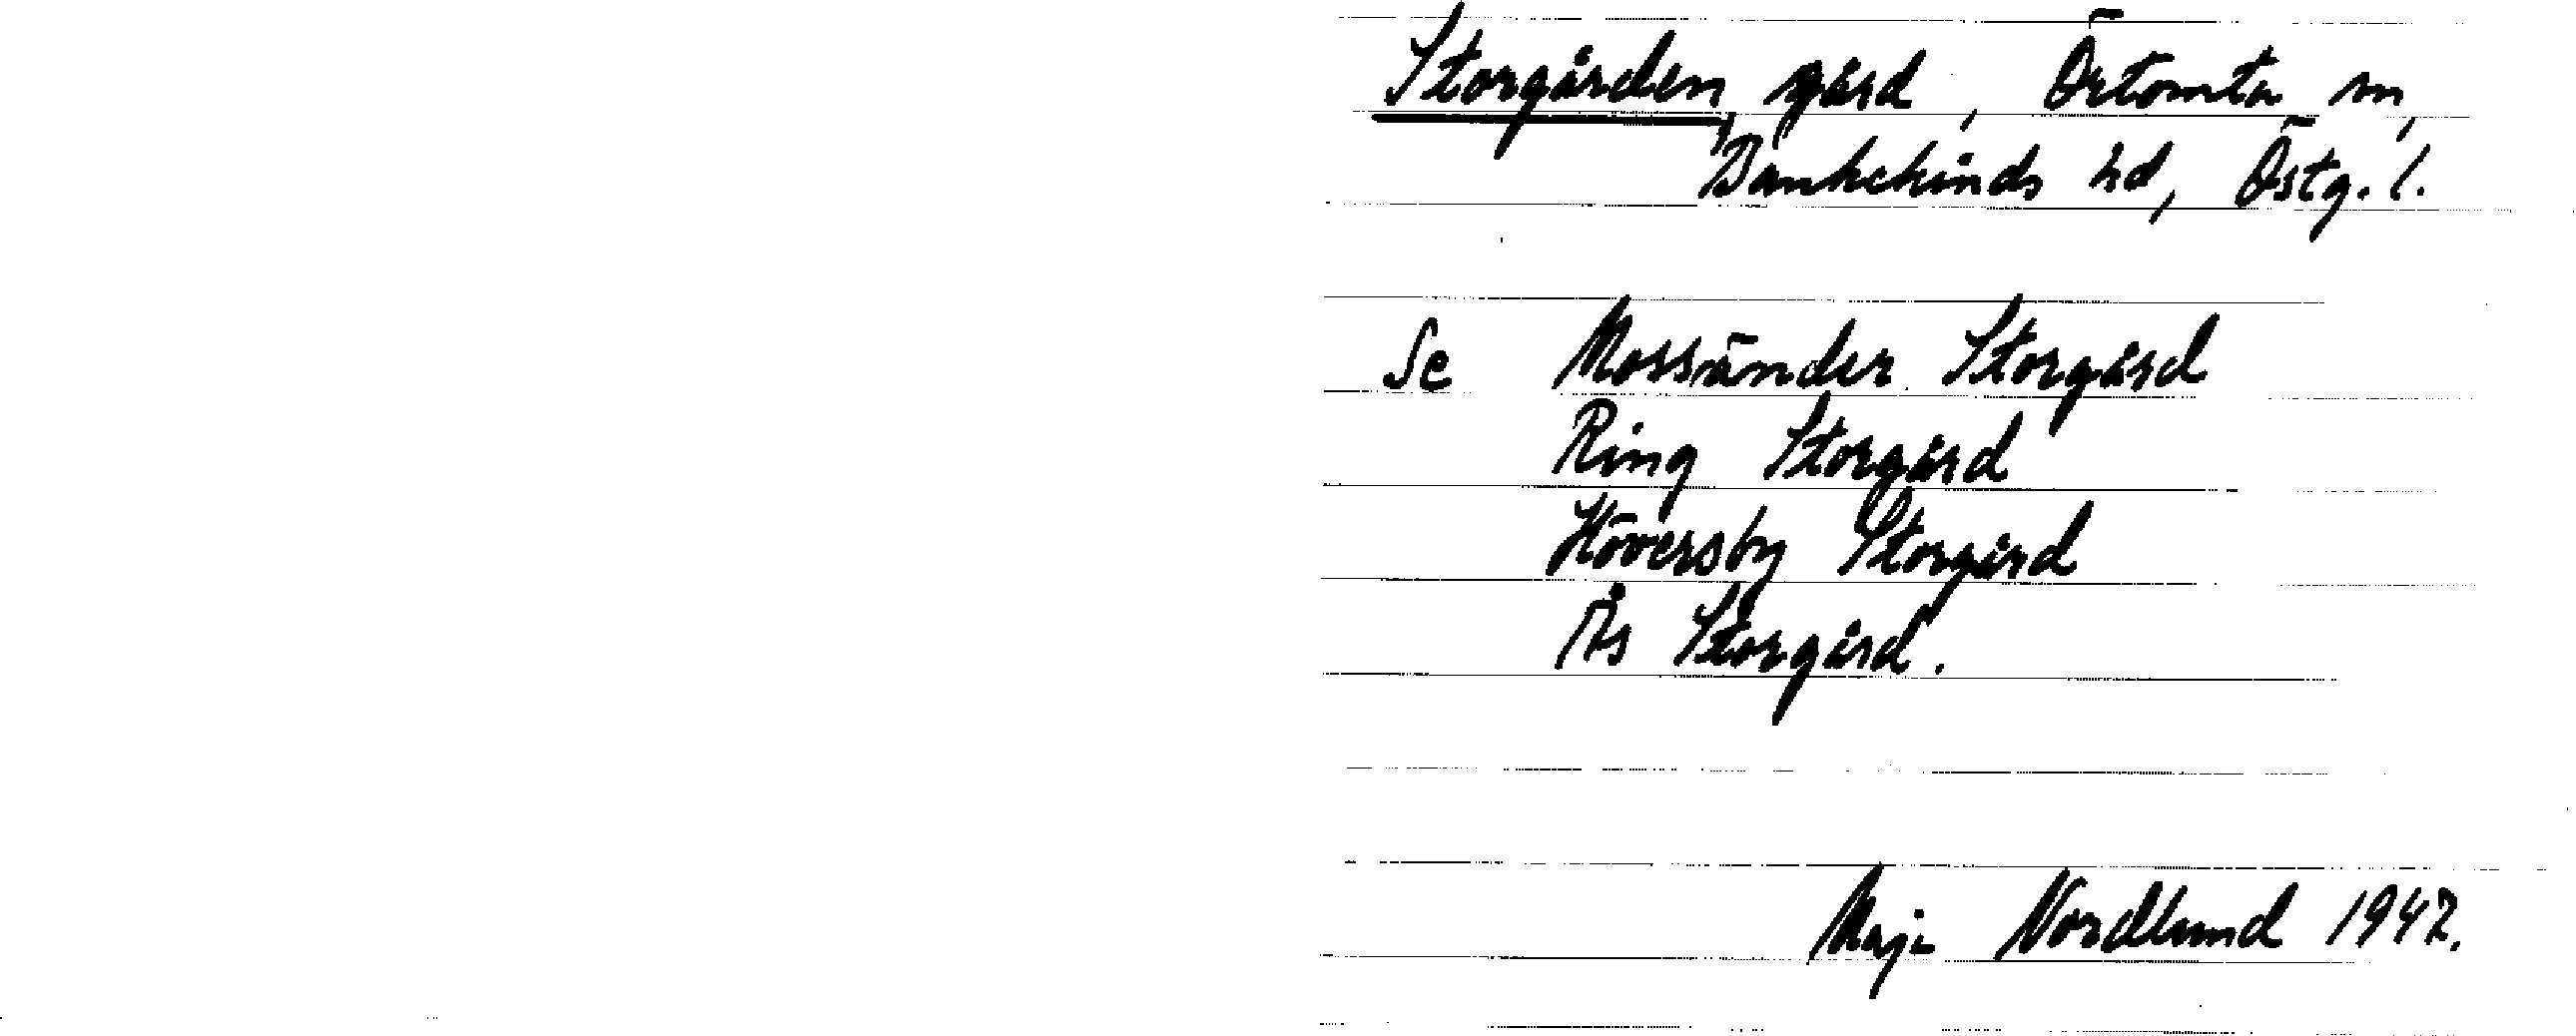 Storgården, gård, Örtomta sn,
Bankekinds hd, Östg. l.
Se Mossränder Storgård
Ring Storgård
Höversby Storgård
Ås Storgård.
Maja Nordlund 1942.